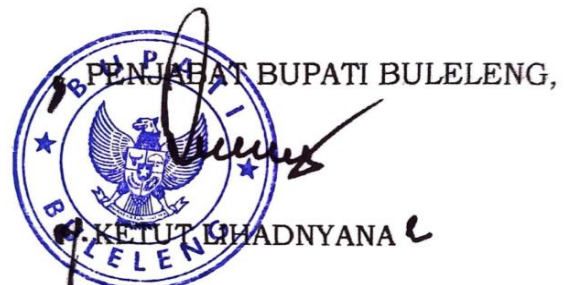 PENJABAT BUPATI BULELENG,
BUPATI
BULELENG
KETUT LIHADNYANA